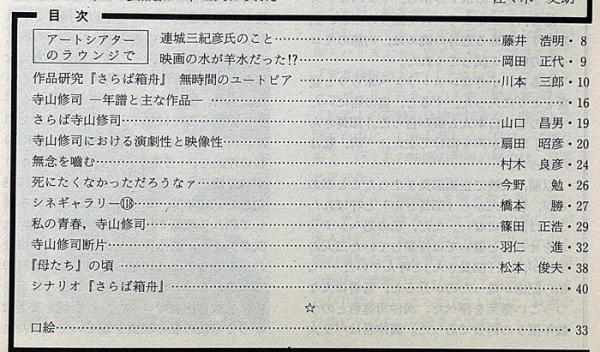 目次
アートシアター
のラウンジで
連城三紀彦氏のこと……藤井 浩明・8
映画の水が羊水だった!?……岡田 正代・9
作品研究『さらば箱舟』 無時間のユートピア……川本 三郎・10
寺山修司 ―年譜と主な作品―……・16
さらば寺山修司……山口 昌男・19
寺山修司における演劇性と映像性……扇田 昭彦・20
無念を嚙む……村木 良彦・24
死にたくなかっただろうなァ……今野 勉・26
シネギャラリー⑱……橋本 勝・27
私の青春，寺山修司……篠田 正浩・29
寺山修司断片……羽仁 進・32
『母たち』の頃……松本 俊夫・38
シナリオ『さらば箱舟』……・40
☆
口絵……33